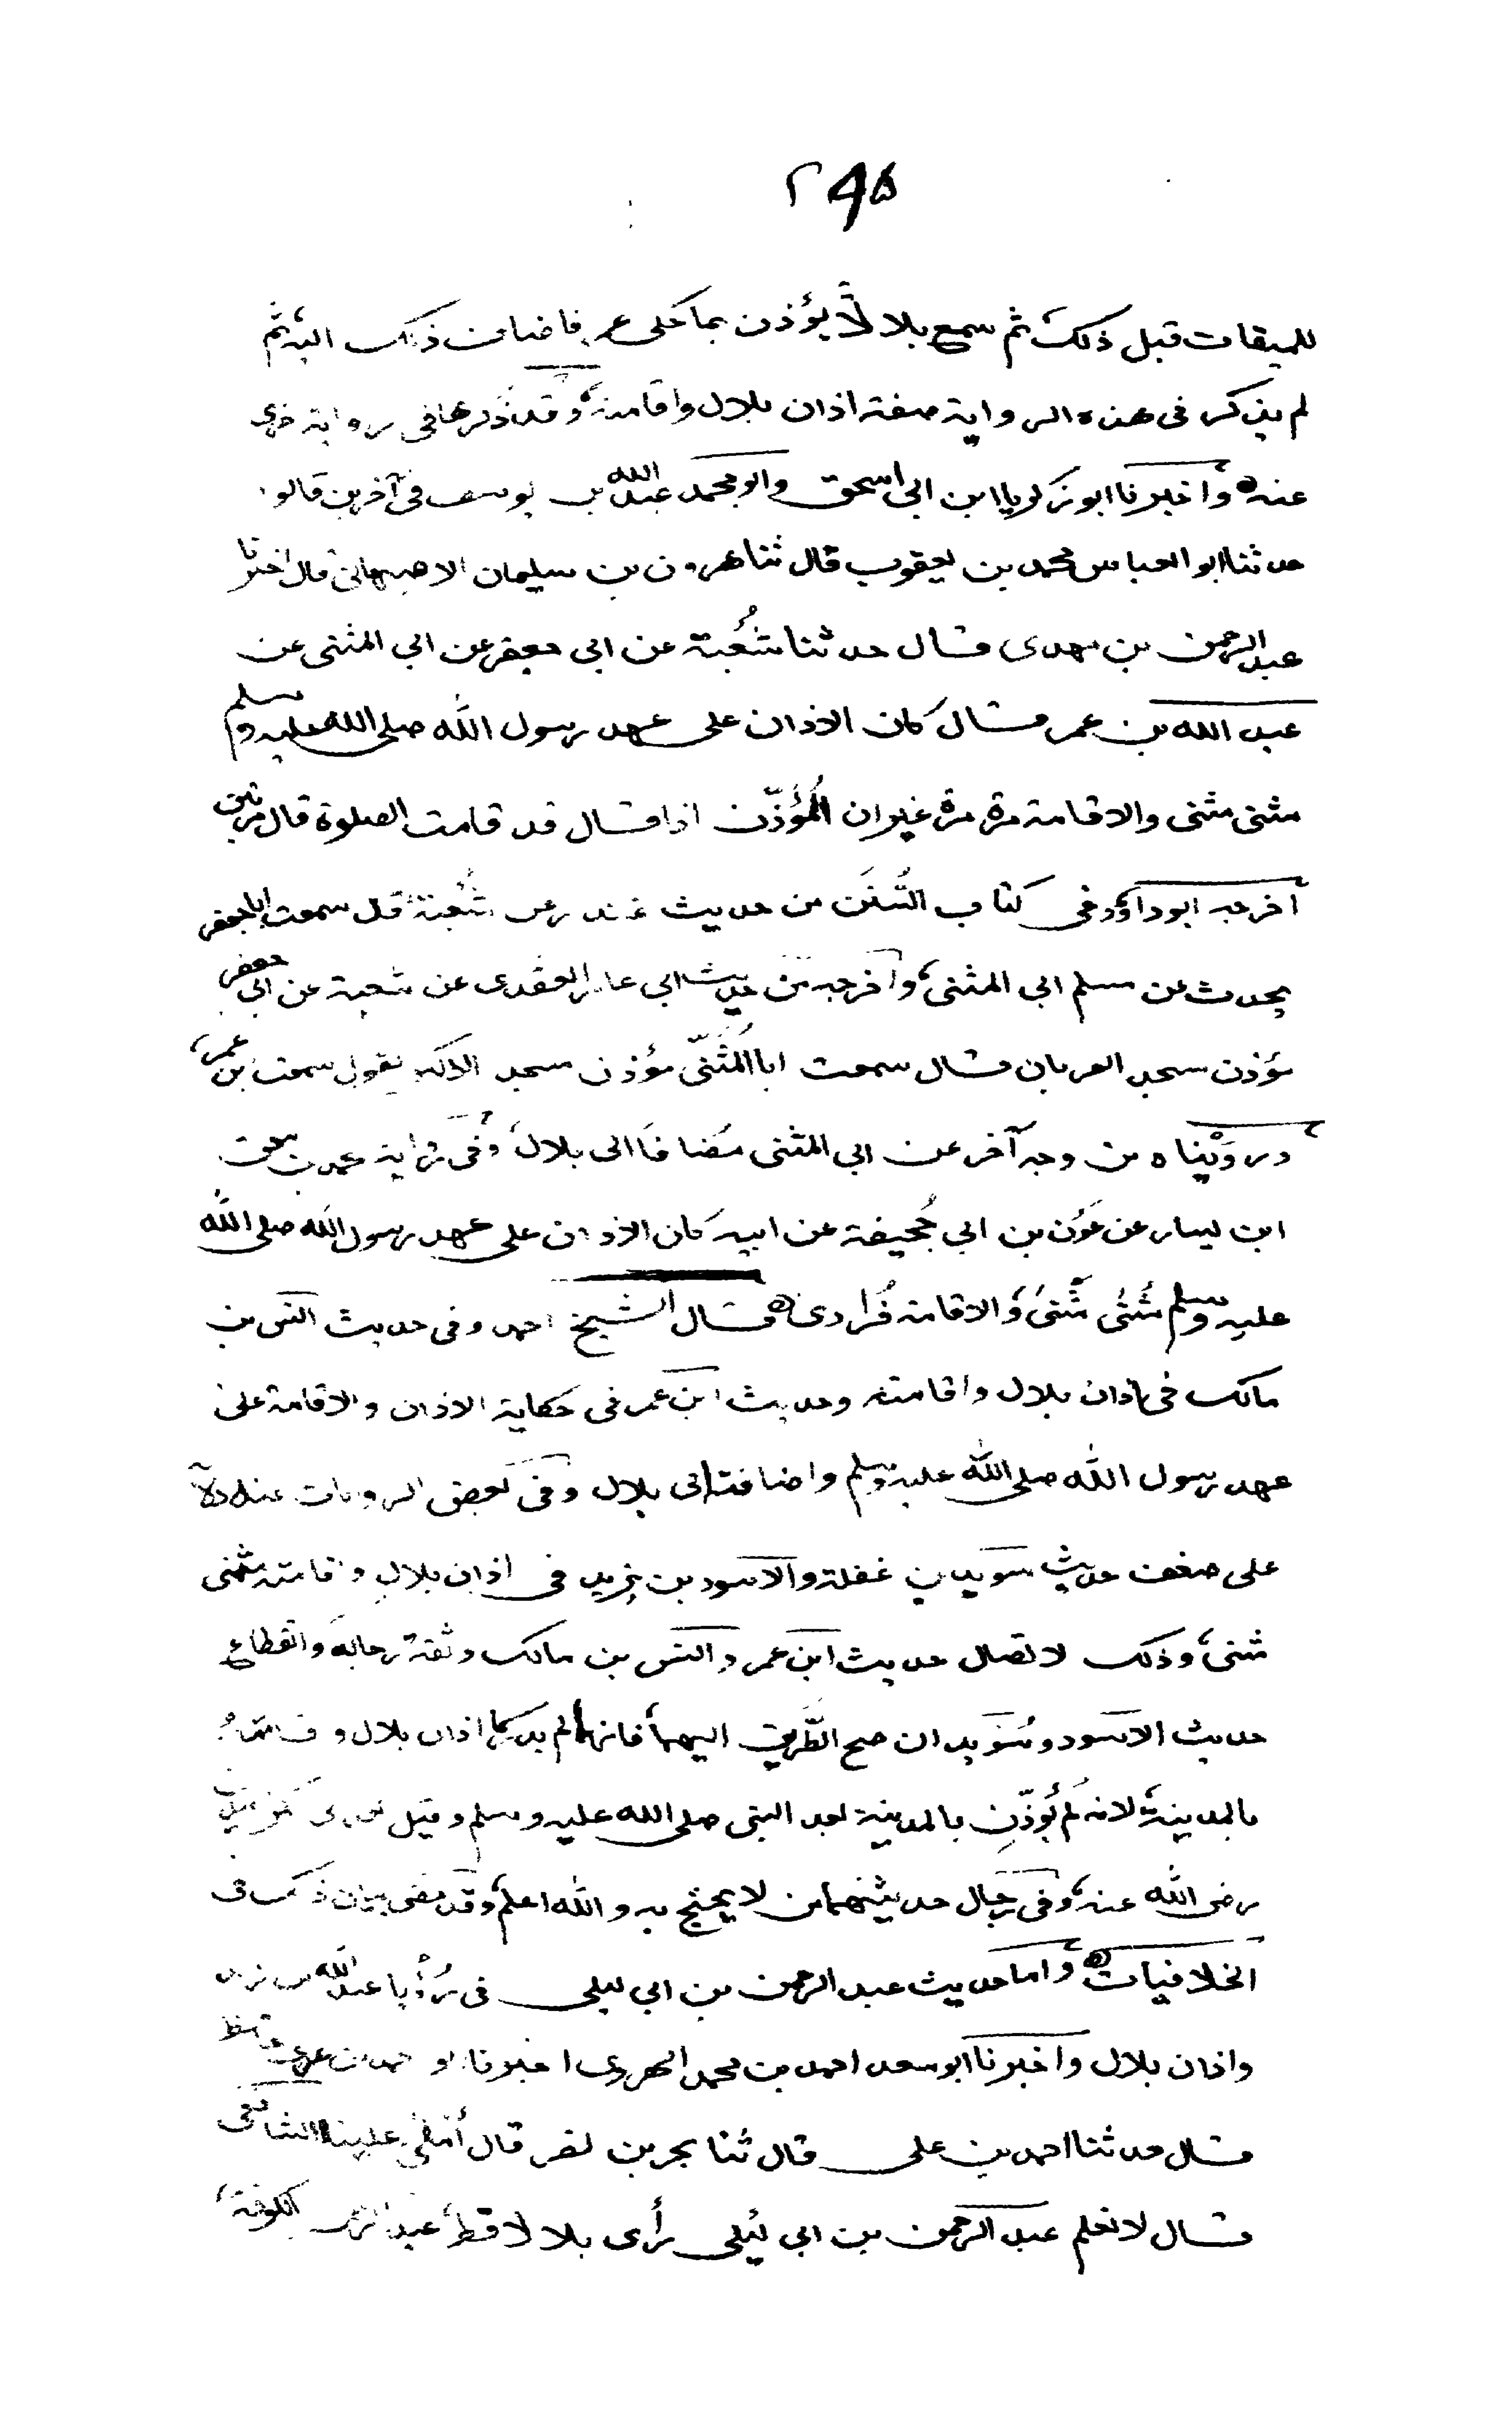 ٢٩٥
للميقات قبل ذلك ثم سمع بلالًا يؤذن بما حكى عمر فاضاف ذلك اليه ثم
لم يذكر فى هذه الرواية صفة اذان بلال واقامته وقد ذكرها فى رواية
عنه واخبرنا ابو زكريا ابن ابى اسحق وابو محمد عبد الله بن يوسف فى آخرين قالوا
حدثنا ابو العباس محمد بن يعقوب قال ثنا هرون بن سليمان الاصبهانى قال اخبرنا
عبد الرحمن بن مهدى قال حدثنا شُعبة عن ابى جعفر عن ابى المثنى عن
عبد الله بن عمر قال كان الاذان على عهد رسول الله صلى الله عليه وسلم
مثنى مثنى والاقامة مرة مرة غير ان المُؤذّن اذا قال قد قامت الصلوة قال مرتين
اخرجه ابو داؤد فى كتاب السُّنَن من حديث غندر عن شُعبة قال سمعت ابا جعفر
يحدث عن مسلم ابى المثنى واخرجه من حديث ابى عامر العقدى عن شعبة عن ابى جعفر
مؤذن مسجد العريان قال سمعت ابا المُثنّى مؤذن مسجد الاكبر يقول سمعت بن عمر
ورَوَيْناه من وجه آخر عن ابى المثنى مضافًا الى بلال وفى رواية محمد بن اسحق
ابن يسار عن عَون بن ابى جُحيفة عن ابيه كان الاذان على عهد رسول الله صلى الله
عليه وسلم مثنى مثنى والاقامة فُرادى قال الشيخ احمد وفى حديث انس بن
مالك فى اذان بلال واقامته وحديث ابن عمر فى حكاية الاذان والاقامة على
عهد رسول الله صلى الله عليه وسلم واضافته الى بلال وفى بعض الروايات عنه دلالة
على ضعف حديث سويد بن غفلة والاسود بن يزيد فى اذان بلال واقامته مثنى
مثنى وذلك لاتصال حديث ابن عمر وانس بن مالك وثقة رجاله وانقطاع
حديث الاسود وسُوَيد ان صح الطّريق اليهما فانهما لم يدركا اذان بلال واقامته
بالمدينة لانه لم يُؤذّن بالمدينة بعد النبى صلى الله عليه وسلم وقيل
رضى الله عنه وفى رجال حديثهما من لا يحتج به والله اعلم وقد مضى بيان ذلك فى
الخلافيات واما حديث عبد الرحمن بن ابى ليلى فى رُؤيا عبد الله بن زيد
واذان بلال واخبرنا ابو سعد احمد بن محمد الهروى اخبرنا ابو احمد بن عدى الحافظ
قال حدثنا احمد بن على قال ثنا بحر بن نصر قال أملى علينا الشافعى
قال لا نعلم عبد الرحمن بن ابى ليلى رأى بلالا قط عبد الرحمن بالكوفة